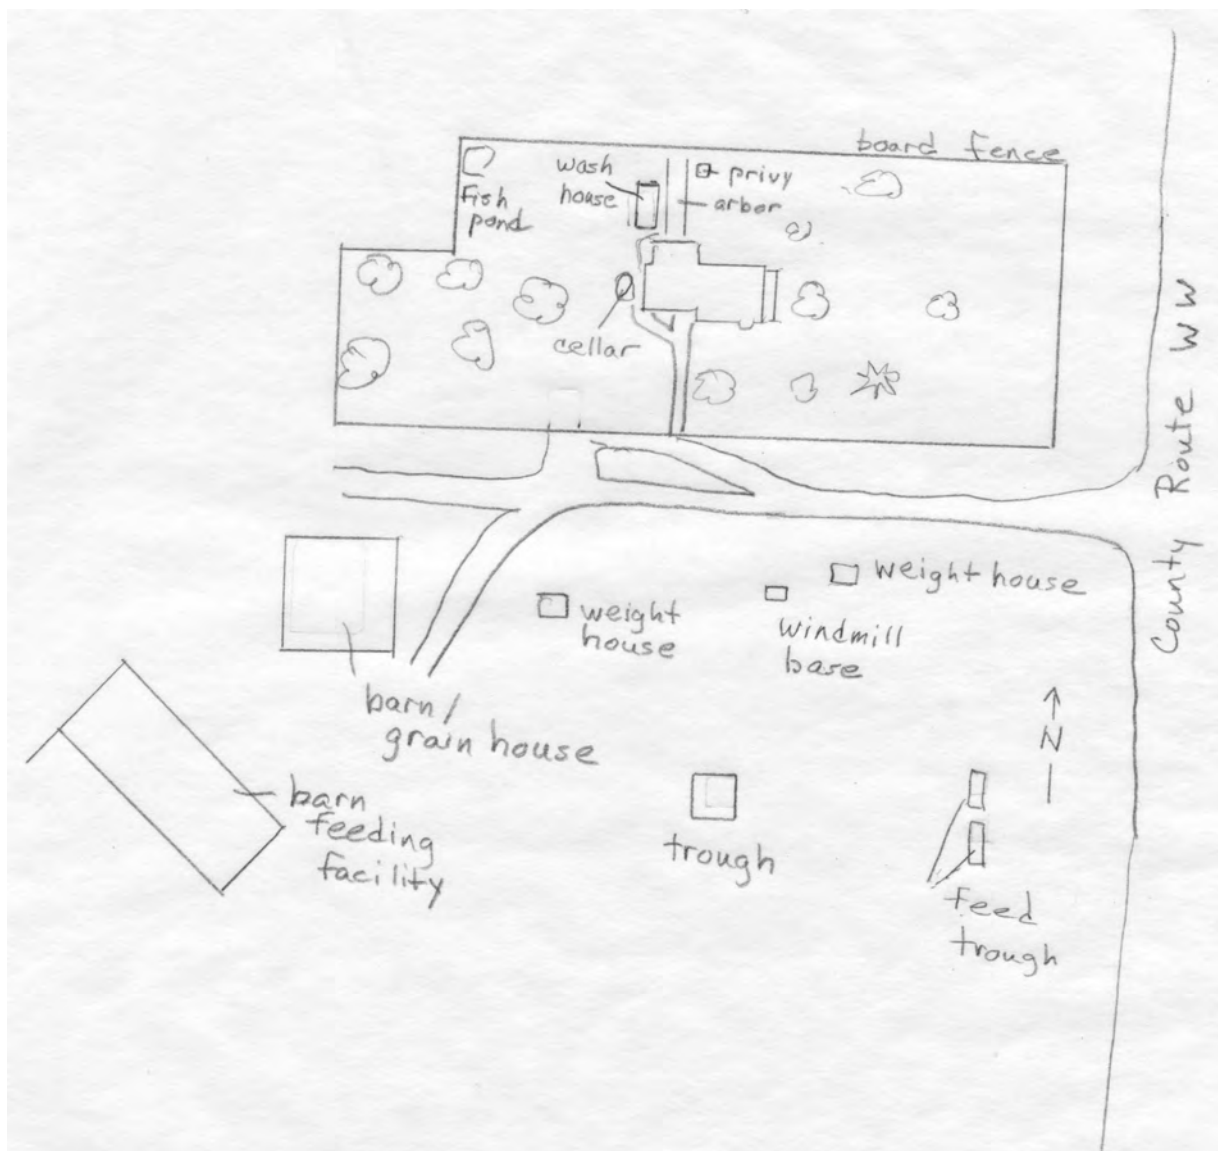 board fence
wash
house
privy
arbor
Fish
pond
cellar
County Route WW
weight house
weight
house
windmill
base
N
barn/
grain house
barn
feeding
facility
trough
feed
trough